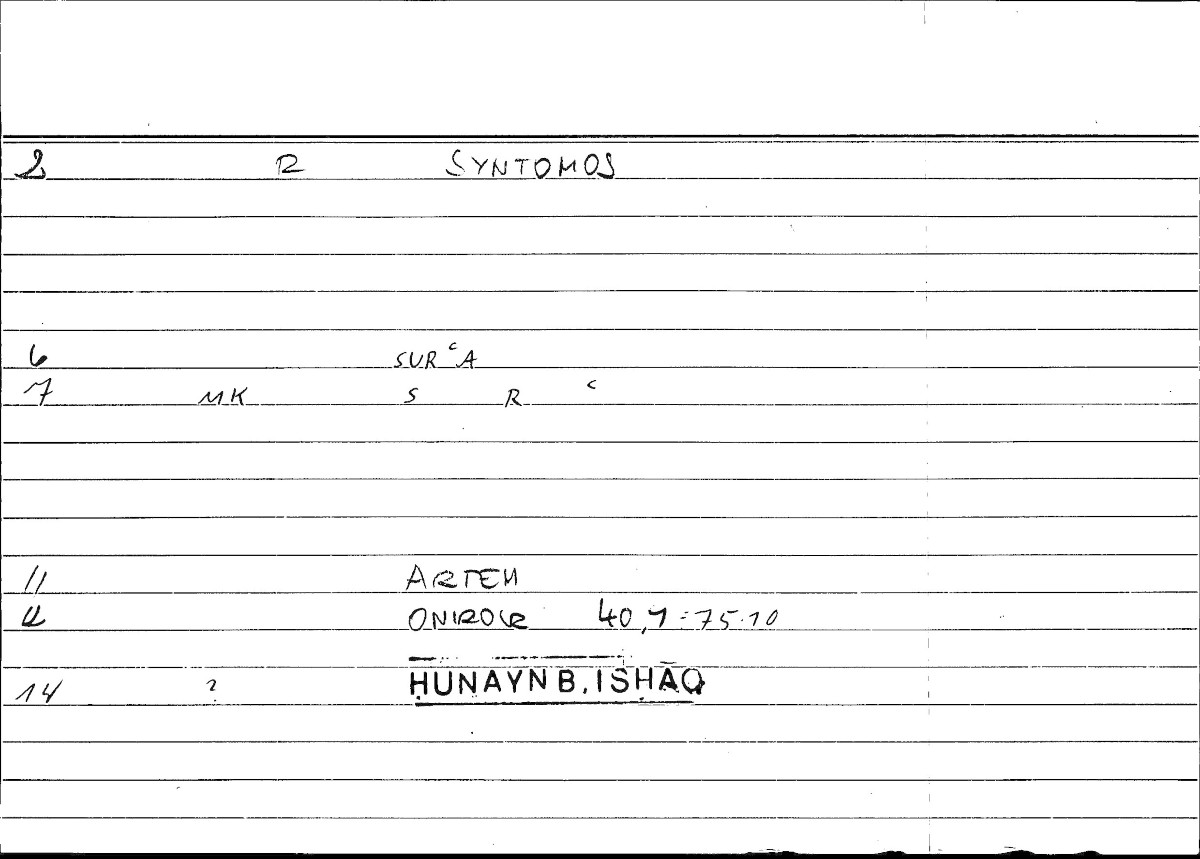 2 R SYNTOMOS
6 SURʿA
7 MK S R ʿ
11 ARTEM
12 ONIROCR 40,1=75.10
14 ? ḤUNAYN B. ISḤĀQ